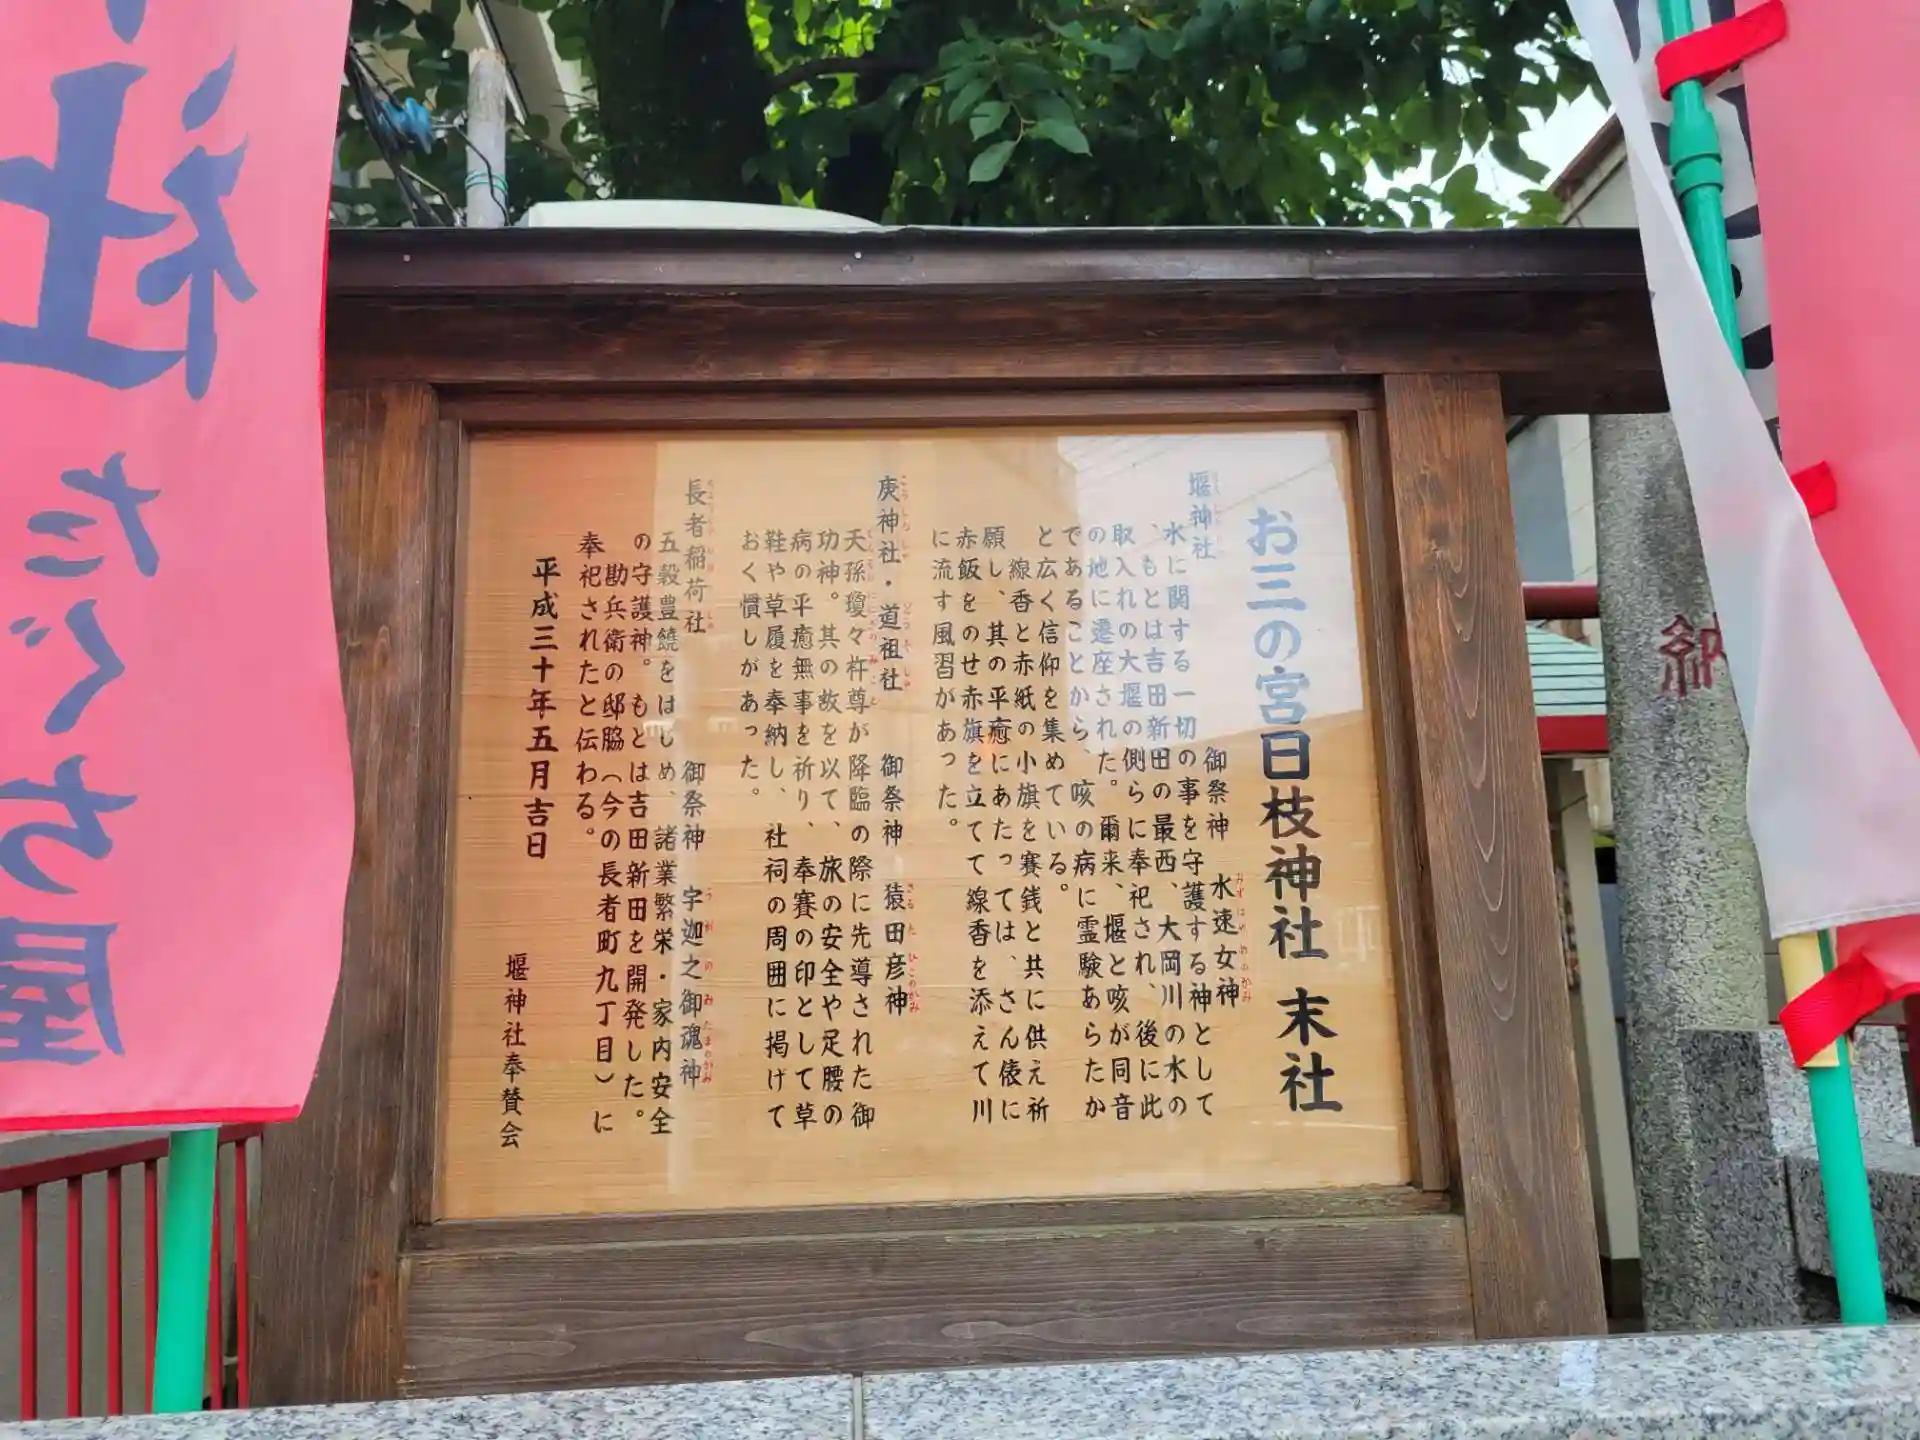 お三の宮日枝神社 末社
堰神社 御祭神 水速女神
水に関する一切の事を守護する神として
、もとは吉田新田の最西、大岡川の水の
取入れの大堰の側らに奉祀され、後に此
の地に遷座された。爾来、堰と咳が同音
であることから、咳の病に霊験あらたか
と広く信仰を集めている。
線香と赤紙の小旗を賽銭と共に供え祈
願し、其の平癒にあたっては、さん俵に
赤飯をのせ赤旗を立てて線香を添えて川
に流す風習があった。
庚神社・道祖社 御祭神 猿田彦神
天孫瓊々杵尊が降臨の際に先導された御
功神。其の故を以て、旅の安全や足腰の
病の平癒無事を祈り、奉賽の印として草
鞋や草履を奉納し、社祠の周囲に掲げて
おく慣しがあった。
長者稲荷社 御祭神 宇迦之御魂神
五穀豊饒をはじめ、諸業繁栄・家内安全
の守護神。もとは吉田新田を開発した。
勘兵衛の邸脇（今の長者町九丁目）に
奉祀されたと伝わる。
平成三十年五月吉日
堰神社奉賛会
社 たぐち屋
納